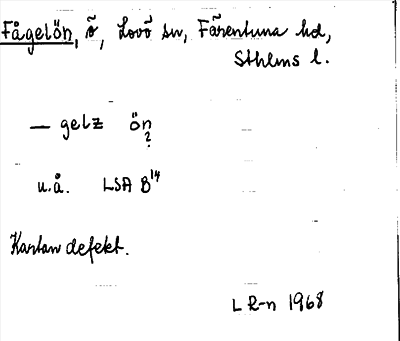 Fågelön, ö, Lovö sn, Färentuna hd,
Sthlms l.
— gelz ön
?
u.å. LSA B 14
Kartan defekt.
L R-n 1968